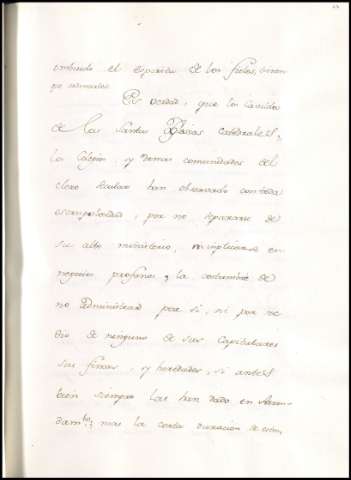 ombiado el espiritu de los fieles, 
Es verdad, que los Cavildos
de las Santas Yglesias Catedrales,
la Colegial, y demas comunidades del
clero secular han observado con toda
escrupulosidad, por no separarse de
su alto ministerio, ni implicarse en
negocios profanos, la costumbre de
no Administrar por si, ni por me
dio de ninguno de sus Capitulares
sus fincas, y heredades, si antes
bien siempre las han dado en Arren
damto; mas la corta duracion de estos,